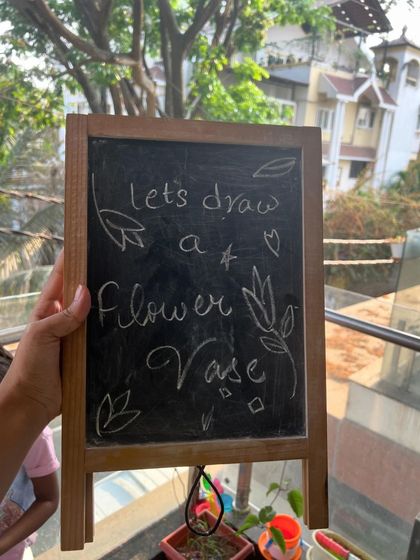 lets draw
a
flower
Vase